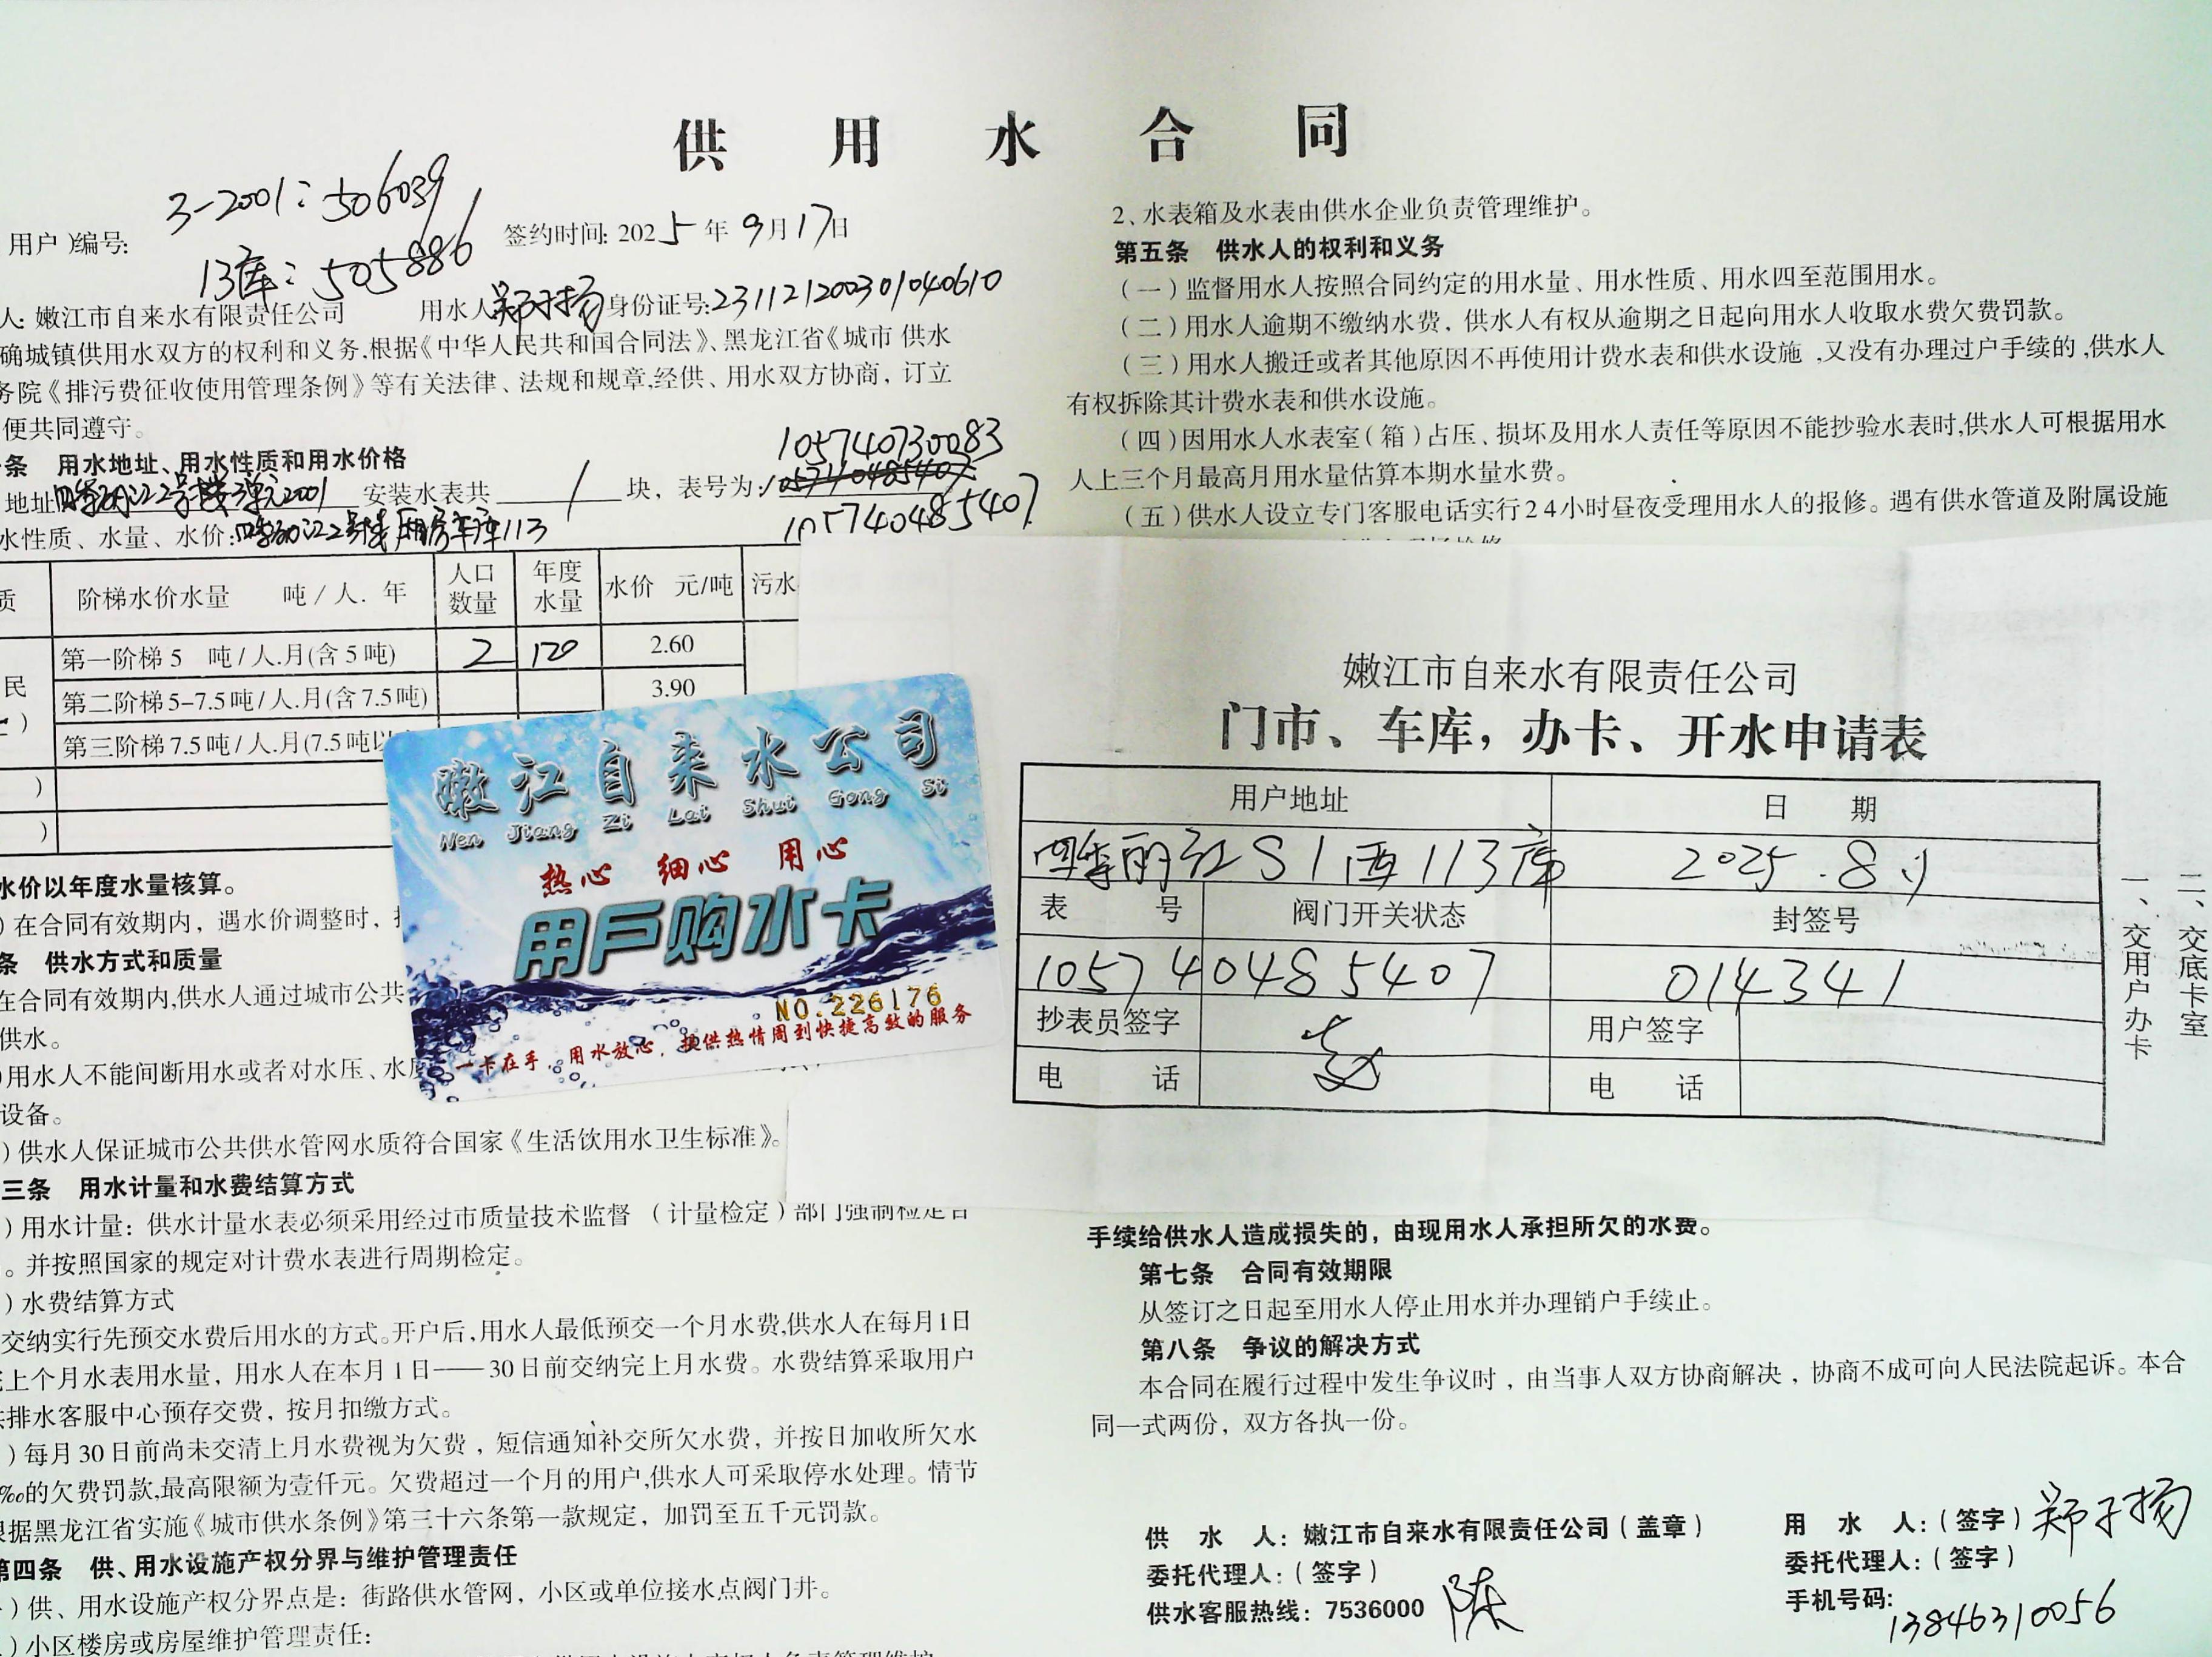 供 用 水 合 同
3-2001:506039
用户)编号:
13库:505886
签约时间:2025年9月17日
人:嫩江市自来水有限责任公司 用水人郑子扬身份证号:231121200301040610
确城镇供用水双方的权利和义务.根据《中华人民共和国合同法》、黑龙江省《城市 供水
务院《排污费征收使用管理条例》等有关法律、法规和规章,经供、用水双方协商,订立
便共同遵守。
条 用水地址、用水性质和用水价格
105740730083
地址 2号楼 2001 安装水表共 1 块,表号为:
105740485407
水性质、水量、水价: 2号楼 车库113
质 阶梯水价水量 吨/人. 年 人口数量 年度水量 水价 元/吨 污水
民 第一阶梯5 吨/人.月(含5吨) 2 120 2.60
第二阶梯5-7.5吨/人.月(含7.5吨) 3.90
第三阶梯7.5吨/人.月(7.5吨以
)
)
水价以年度水量核算。
)在合同有效期内,遇水价调整时,
条 供水方式和质量
在合同有效期内,供水人通过城市公共
供水。
)用水人不能间断用水或者对水压、水
设备。
)供水人保证城市公共供水管网水质符合国家《生活饮用水卫生标准》。
三条 用水计量和水费结算方式
)用水计量:供水计量水表必须采用经过市质量技术监督(计量检定)部门强制检定合
。并按照国家的规定对计费水表进行周期检定。
)水费结算方式
交纳实行先预交水费后用水的方式。开户后,用水人最低预交一个月水费,供水人在每月1日
上个月水表用水量,用水人在本月1日——30日前交纳完上月水费。水费结算采取用户
排水客服中心预存交费,按月扣缴方式。
)每月30日前尚未交清上月水费视为欠费,短信通知补交所欠水费,并按日加收所欠水
‰的欠费罚款,最高限额为壹仟元。欠费超过一个月的用户,供水人可采取停水处理。情节
根据黑龙江省实施《城市供水条例》第三十六条第一款规定,加罚至五千元罚款。
第四条 供、用水设施产权分界与维护管理责任
)供、用水设施产权分界点是:街路供水管网,小区或单位接水点阀门井。
)小区楼房或房屋维护管理责任:
2、水表箱及水表由供水企业负责管理维护。
第五条 供水人的权利和义务
(一)监督用水人按照合同约定的用水量、用水性质、用水四至范围用水。
(二)用水人逾期不缴纳水费,供水人有权从逾期之日起向用水人收取水费欠费罚款。
(三)用水人搬迁或者其他原因不再使用计费水表和供水设施,又没有办理过户手续的,供水人
有权拆除其计费水表和供水设施。
(四)因用水人水表室(箱)占压、损坏及用水人责任等原因不能抄验水表时,供水人可根据用水
人上三个月最高月用水量估算本期水量水费。
(五)供水人设立专门客服电话实行24小时昼夜受理用水人的报修。遇有供水管道及附属设施
嫩江市自来水有限责任公司
门市、车库,办卡、开水申请表
用户地址 日 期
四季丽江S1西113库 2025.8.
表 号 阀门开关状态 封签号
105740485407 014341
抄表员签字 用户签字
电 话 电 话
一、交用户办卡
二、交底卡室
嫩江自来水公司
Nen Jiang Zi Lai Shui Gong Si
热心 细心 用心
用户购水卡
NO.226176
一卡在手,用水放心,提供热情周到快捷高效的服务
手续给供水人造成损失的,由现用水人承担所欠的水费。
第七条 合同有效期限
从签订之日起至用水人停止用水并办理销户手续止。
第八条 争议的解决方式
本合同在履行过程中发生争议时,由当事人双方协商解决,协商不成可向人民法院起诉。本合
同一式两份,双方各执一份。
供 水 人:嫩江市自来水有限责任公司(盖章)
委托代理人:(签字)
供水客服热线:7536000 陈
用 水 人:(签字)郑子扬
委托代理人:(签字)
手机号码:13846310056